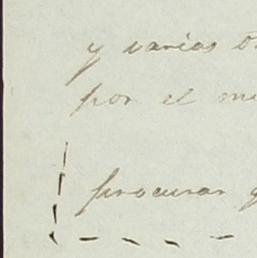 y varias
por el
procurar